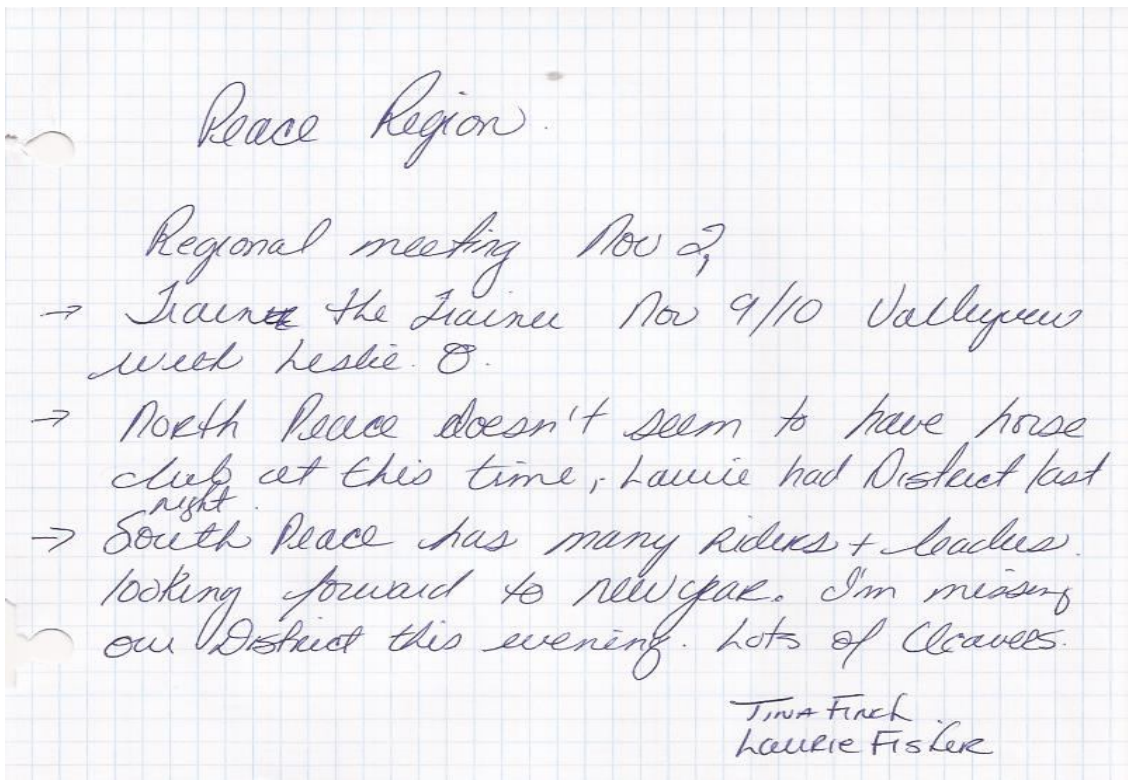 Peace Region.
Regional meeting Nov 2,
→ Train the Trainer Nov 9/10 Valleyview
with Leslie. O.
→ North Peace doesn't seem to have horse
club at this time, Laurie had District last
night.
→ South Peace has many Riders + leaders.
looking forward to new year. I'm missing
our District this evening. Lots of Cleavers.
Tina Finch
Laurie Fisher